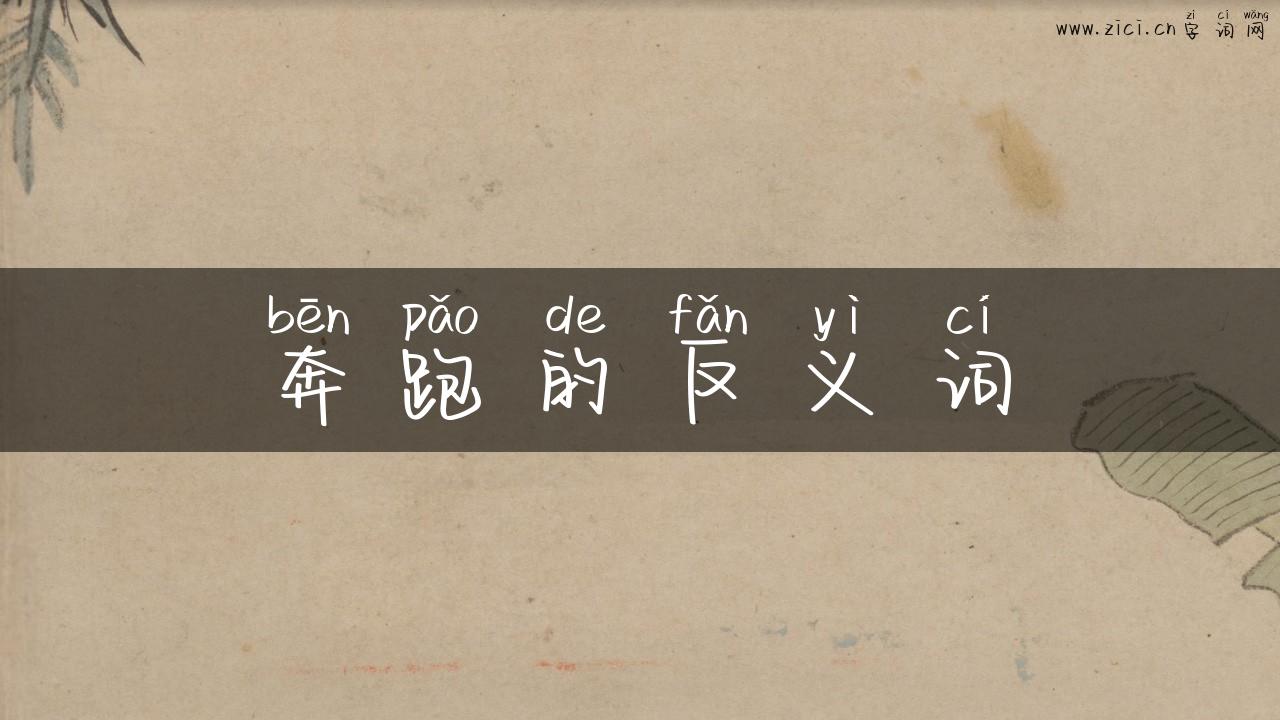 zì cí wǎng
www.zici.cn 字词网
bēn pǎo de fǎn yì cí
奔跑的反义词